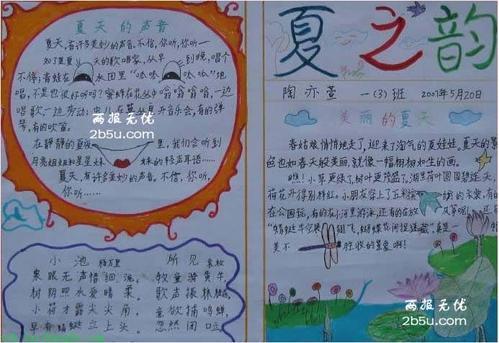 夏天的声音
夏天,有许多美妙的声音,不信,你听,你听一
知了里里 天的歌唱家,从早 到晚,唱个
不停;青蛙在 水田里"呱呱 呱呱"地
唱,不是也很好听吗?蜜蜂在花丛中嗡嗡嗡嗡,一边
唱歌一边劳动;虫儿在草丛里开音乐会,有的弹
琴,有的吹笛。
在静静的夏晚 里,我们会听到
月亮姐姐和星星妹 妹的轻声耳语……
夏天,有许多美妙的声音,不信,你听,
你听……
两报无忧
2b5u.com
小池 杨万里
泉眼无声惜细流,
树阴照水爱晴柔。
小荷才露尖尖角,
早有蜻蜓立上头。
所见 袁枚
牧童骑黄牛
歌声振林樾
意欲捕鸣蝉
忽然闭口立
夏之韵
陶亦萱 一(3)班 2007年5月20日
美丽的夏天
春姑娘悄悄地走了,迎来了淘气的夏娃娃。夏天的景
色也如春天般美丽,就像一幅栩栩如生的画。
瞧!小草更绿了,树叶更茂盛了,湖里荷叶圆圆
荷花开得别样红。小朋友穿上了五彩缤 的衣裳,有的
在公园玩,有的在小河里游泳,还有的在放 风筝呢!
"蜻蜓 翅飞,蝴蝶花间捉迷藏" 是一
美不 胜收的景象啊!
两报无忧
2b5u.com